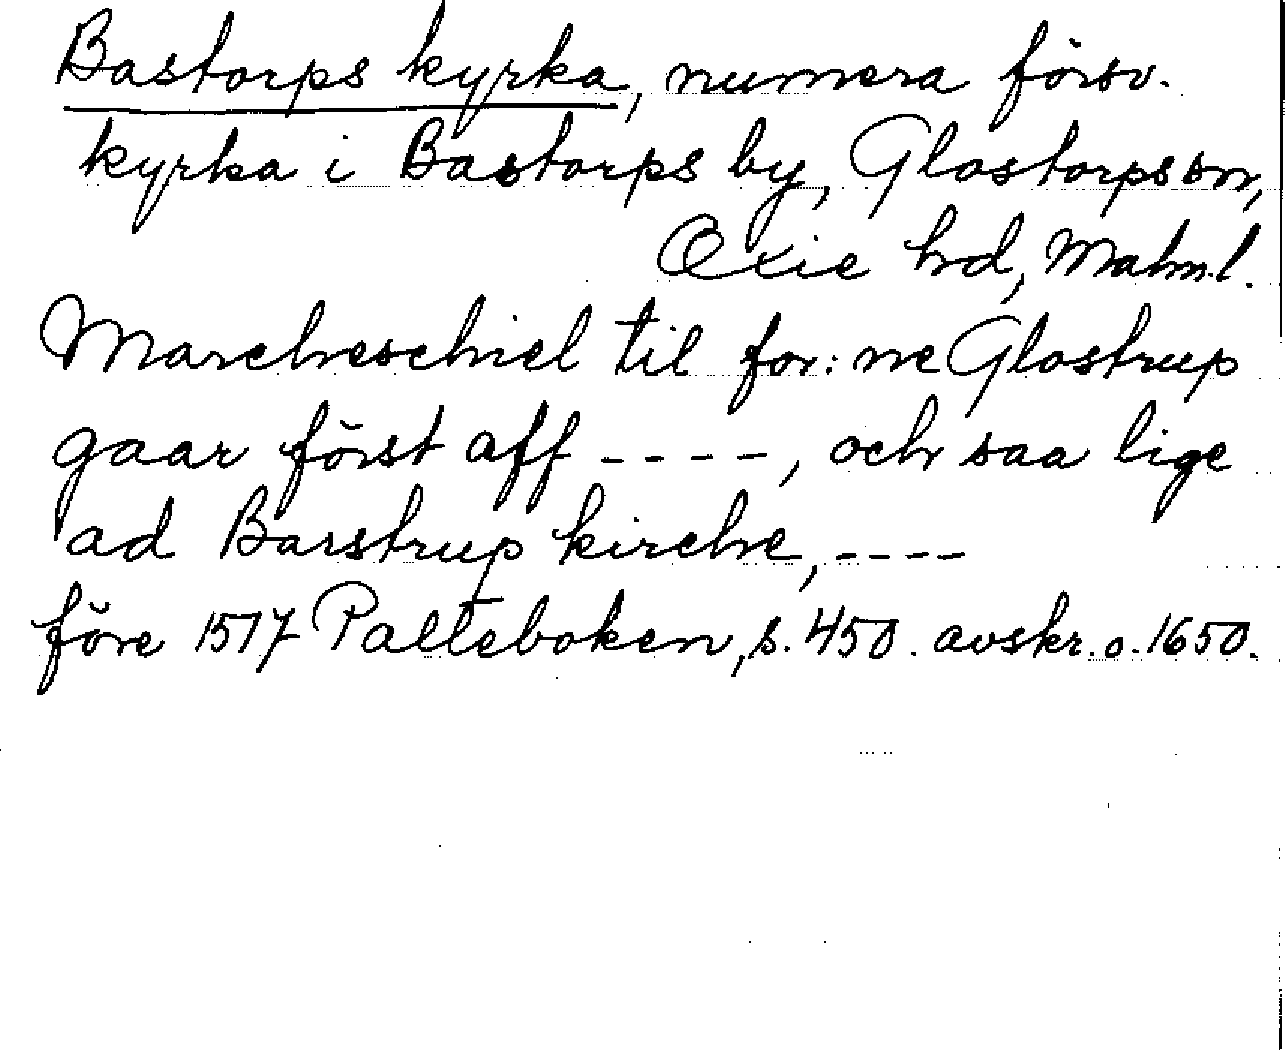 Bastorps kyrka, numera försv.
kyrka i Bastorps by, Glostorps sn,
Oxie hd, Malm.l.
Marcheschiel til for: ne Glostrup
gaar först aff ----, och saa lige
ad Barstrup kirche, ----
före 1517 Palteboken, s. 450. avskr. o. 1650.